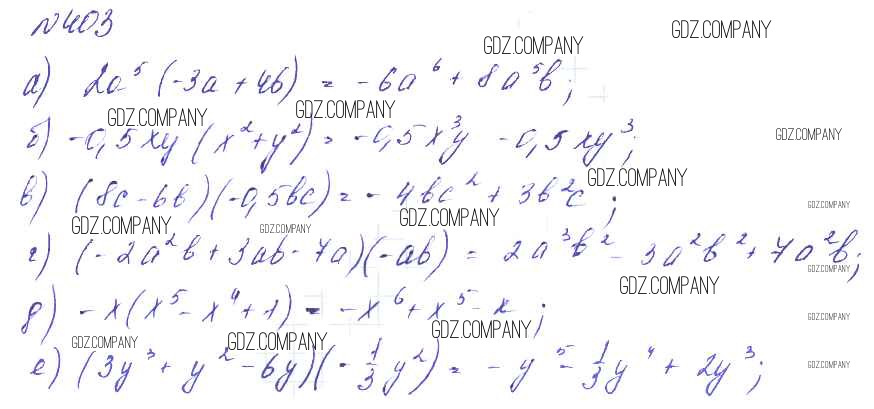 №403
GDZ.COMPANY GDZ.COMPANY
а) 2a⁵(-3a + 4b) = -6a⁶ + 8a⁵b;
GDZ.COMPANY GDZ.COMPANY
б) -0,5xy(x²+y²) = -0,5x³y - 0,5xy³;
GDZ.COMPANY
GDZ.COMPANY
в) (8c - 6b)(-0,5bc) = -4bc² + 3b²c;
GDZ.COMPANY
GDZ.COMPANY GDZ.COMPANY GDZ.COMPANY
г) (-2a²b + 3ab - 7a)(-ab) = 2a³b² - 3a²b² + 7a²b;
GDZ.COMPANY
GDZ.COMPANY
д) -x(x⁵ - x⁴ + 1) = -x⁶ + x⁵ - x;
GDZ.COMPANY
GDZ.COMPANY GDZ.COMPANY GDZ.COMPANY
е) (3y³ + y² - 6y)(-1/3y²) = -y⁵ - 1/3y⁴ + 2y³;
GDZ.COMPANY